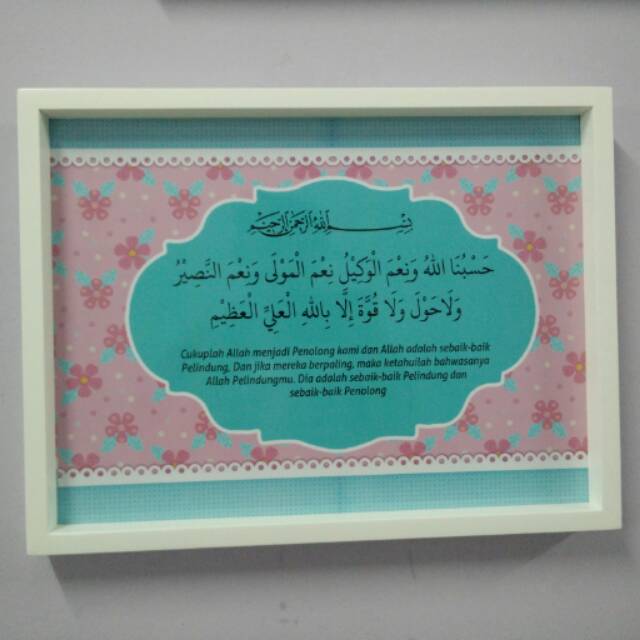 بسم الله الرحمن الرحيم
حَسْبُنَا اللهُ وَنَعْمَ الْوَكِيْلُ نِعْمَ الْمَوْلَى وَنِعْمَ النَّصِيْرُ
وَلَاحَوْلَ وَلَا قُوَّةَ إِلَّا بِاللهِ الْعَلِيِّ الْعَظِيْمِ
Cukuplah Allah menjadi Penolong kami dan Allah adalah sebaik-baik
Pelindung, Dan jika mereka berpaling, maka ketahuilah bahwasanya
Allah Pelindungmu. Dia adalah sebaik-baik Pelindung dan
sebaik-baik Penolong